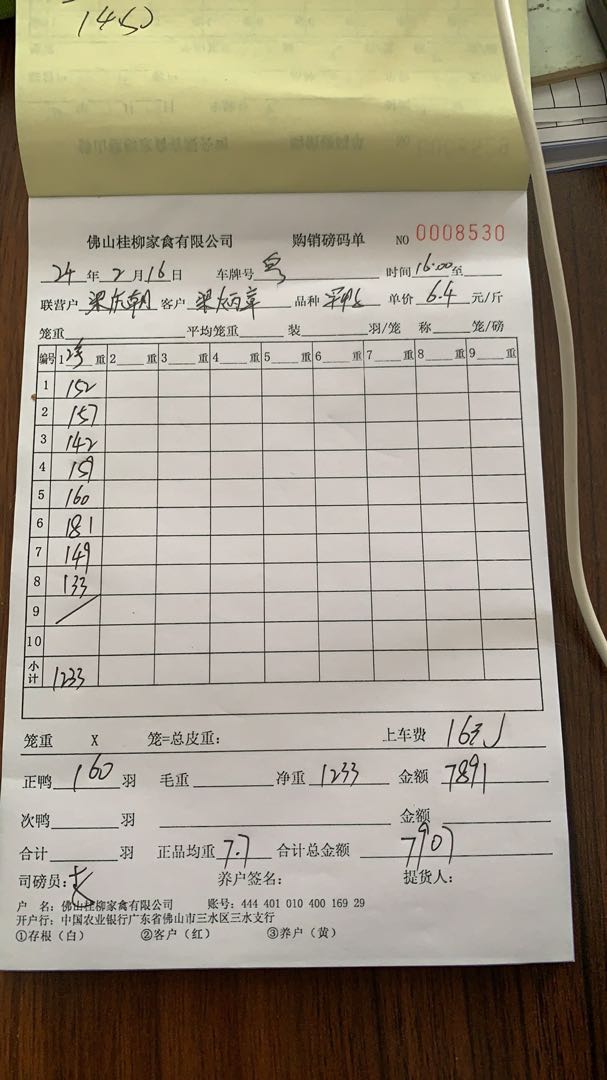 1450
佛山桂柳家禽有限公司 购销磅码单 NO 0008530
24年2月16日 车牌号 粤 时间16:00至
联营户 梁庆朝 客户 梁炳章 品种 单价 6.4 元/斤
笼重 平均笼重 装 羽/笼 称 笼/磅
编号 1 重 2 重 3 重 4 重 5 重 6 重 7 重 8 重 9 重
1 152
2 157
3 142
4 159
5 160
6 181
7 149
8 133
9 /
10
小计 1233
笼重 X 笼=总皮重: 上车费
正鸭 160 羽 毛重 净重 1233 金额 7891
次鸭 羽 金额
合计 羽 正品均重 7.7 合计总金额 7907
司磅员: 养户签名: 提货人:
户 名: 佛山桂柳家禽有限公司 账号: 444 401 010 400 169 29
开户行: 中国农业银行广东省佛山市三水区三水支行
①存根(白) ②客户(红) ③养户(黄)